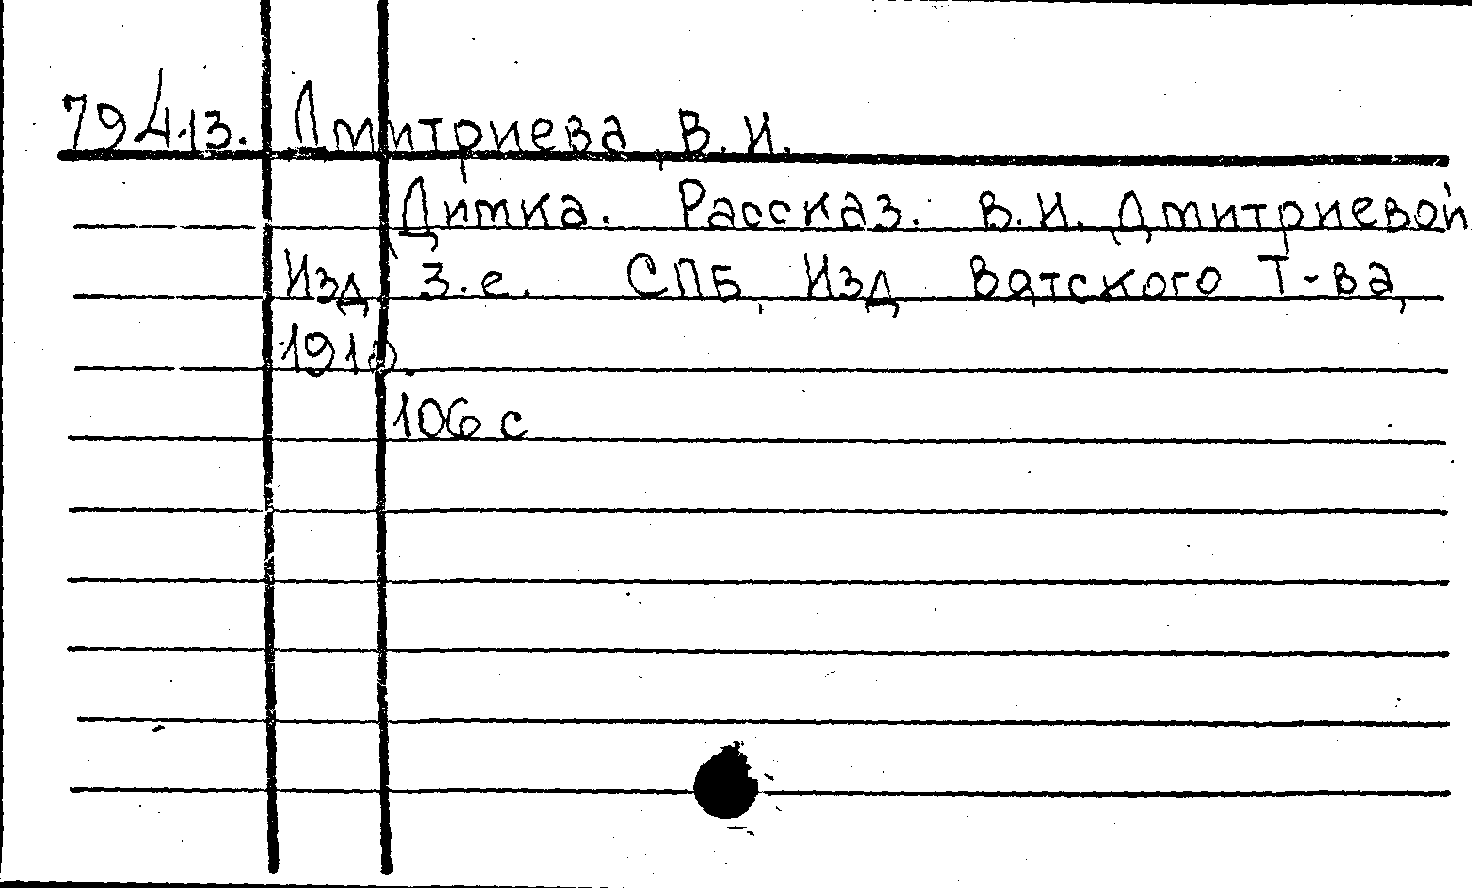 79413. Дмитриева, В.И.
Димка. Рассказ. В.И. Дмитриевой
Изд 3-е. СПБ, Изд Вятского Т-ва,
1910.
106 с